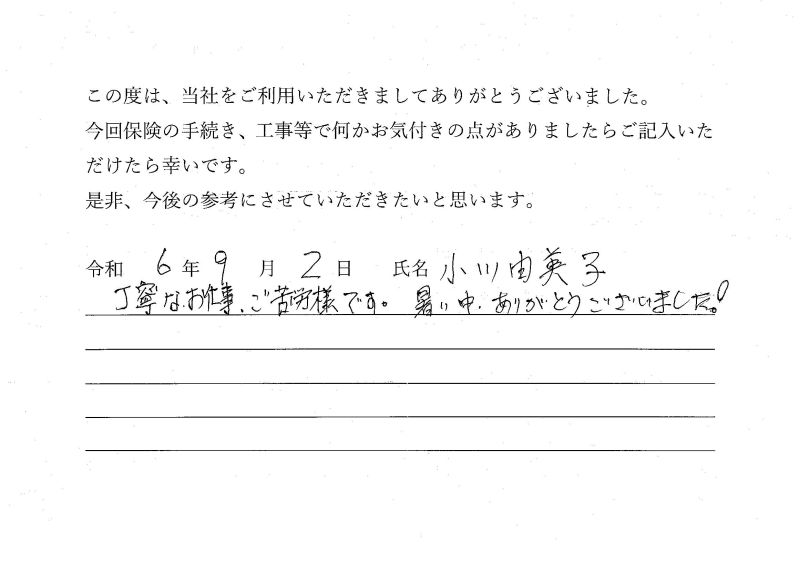 この度は、当社をご利用いただきましてありがとうございました。
今回保険の手続き、工事等で何かお気付きの点がありましたらご記入いた
だけたら幸いです。
是非、今後の参考にさせていただきたいと思います。
令和 6 年 9 月 2 日 氏名 小川由英子
丁寧なお仕事、ご苦労様です。暑い中、ありがとうございました。!